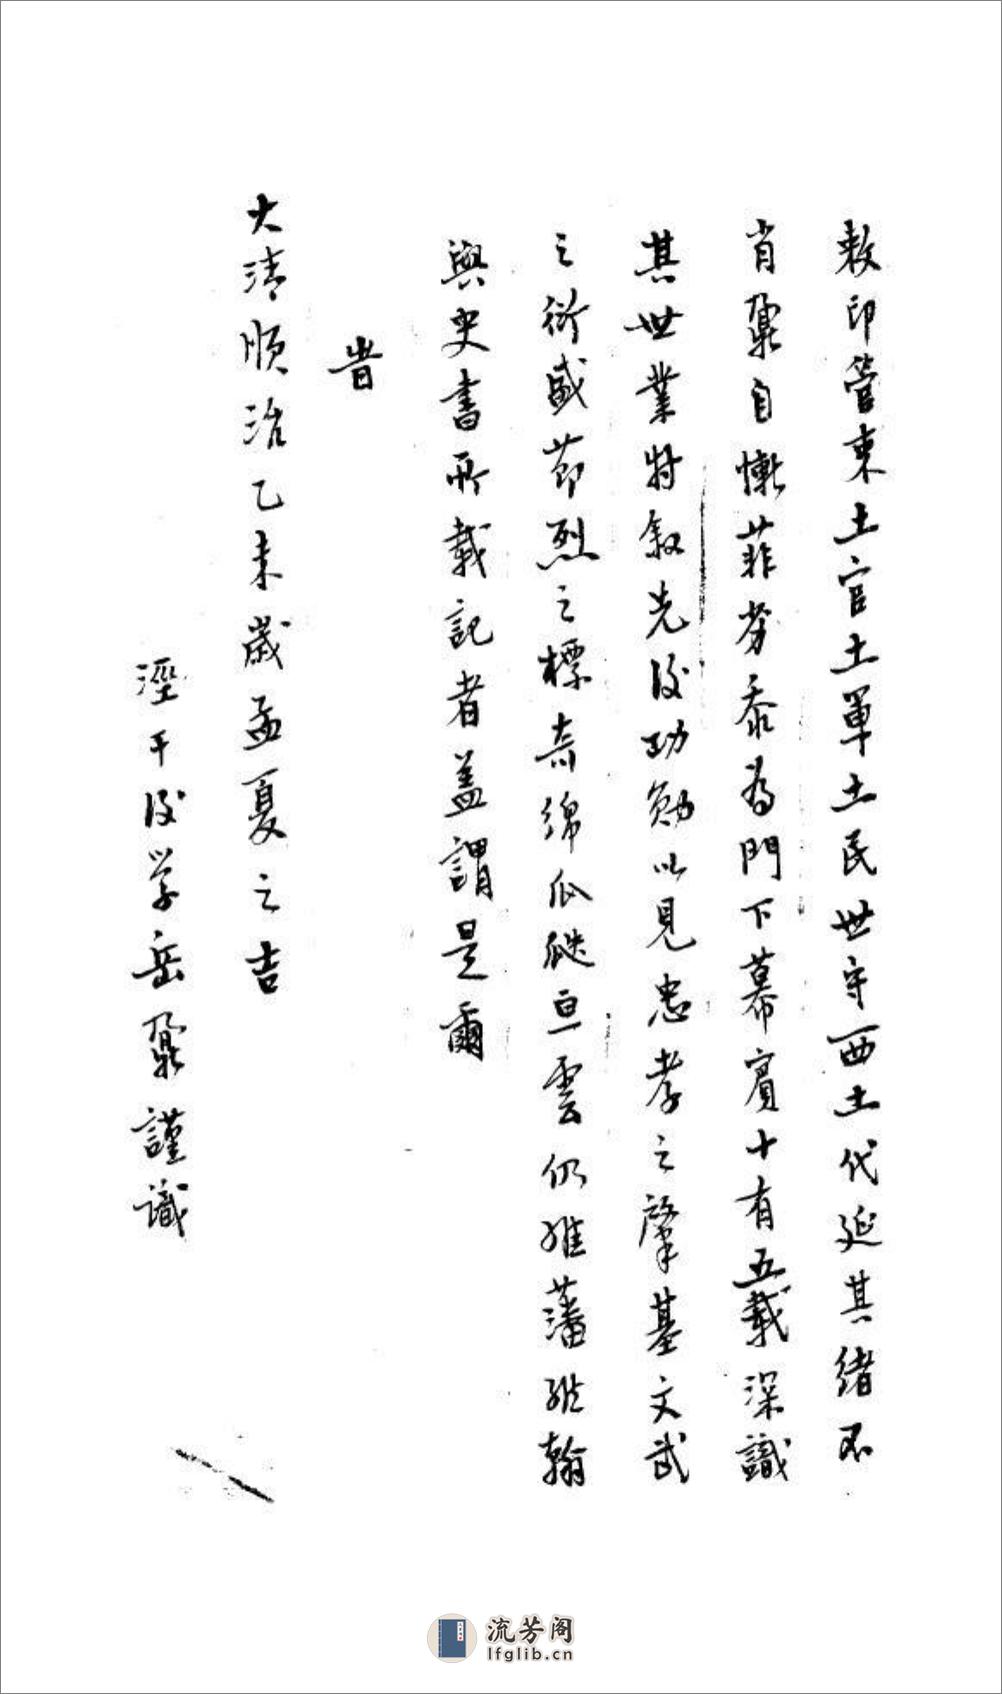 敕印管束土官土軍土民世守西土代延其緒不
肖鼐自慚菲劣忝為門下幕賓十有五載深識
其世業特叙先後功勛以見忠孝之肇基文武
之衍盛節烈之標奇綿瓜瓞亘雲仍維藩維翰
與史書所載記者蓋謂是爾
旹
大清順治乙未歲孟夏之吉
涇干後学岳鼐謹識
流芳阁
lfglib.cn